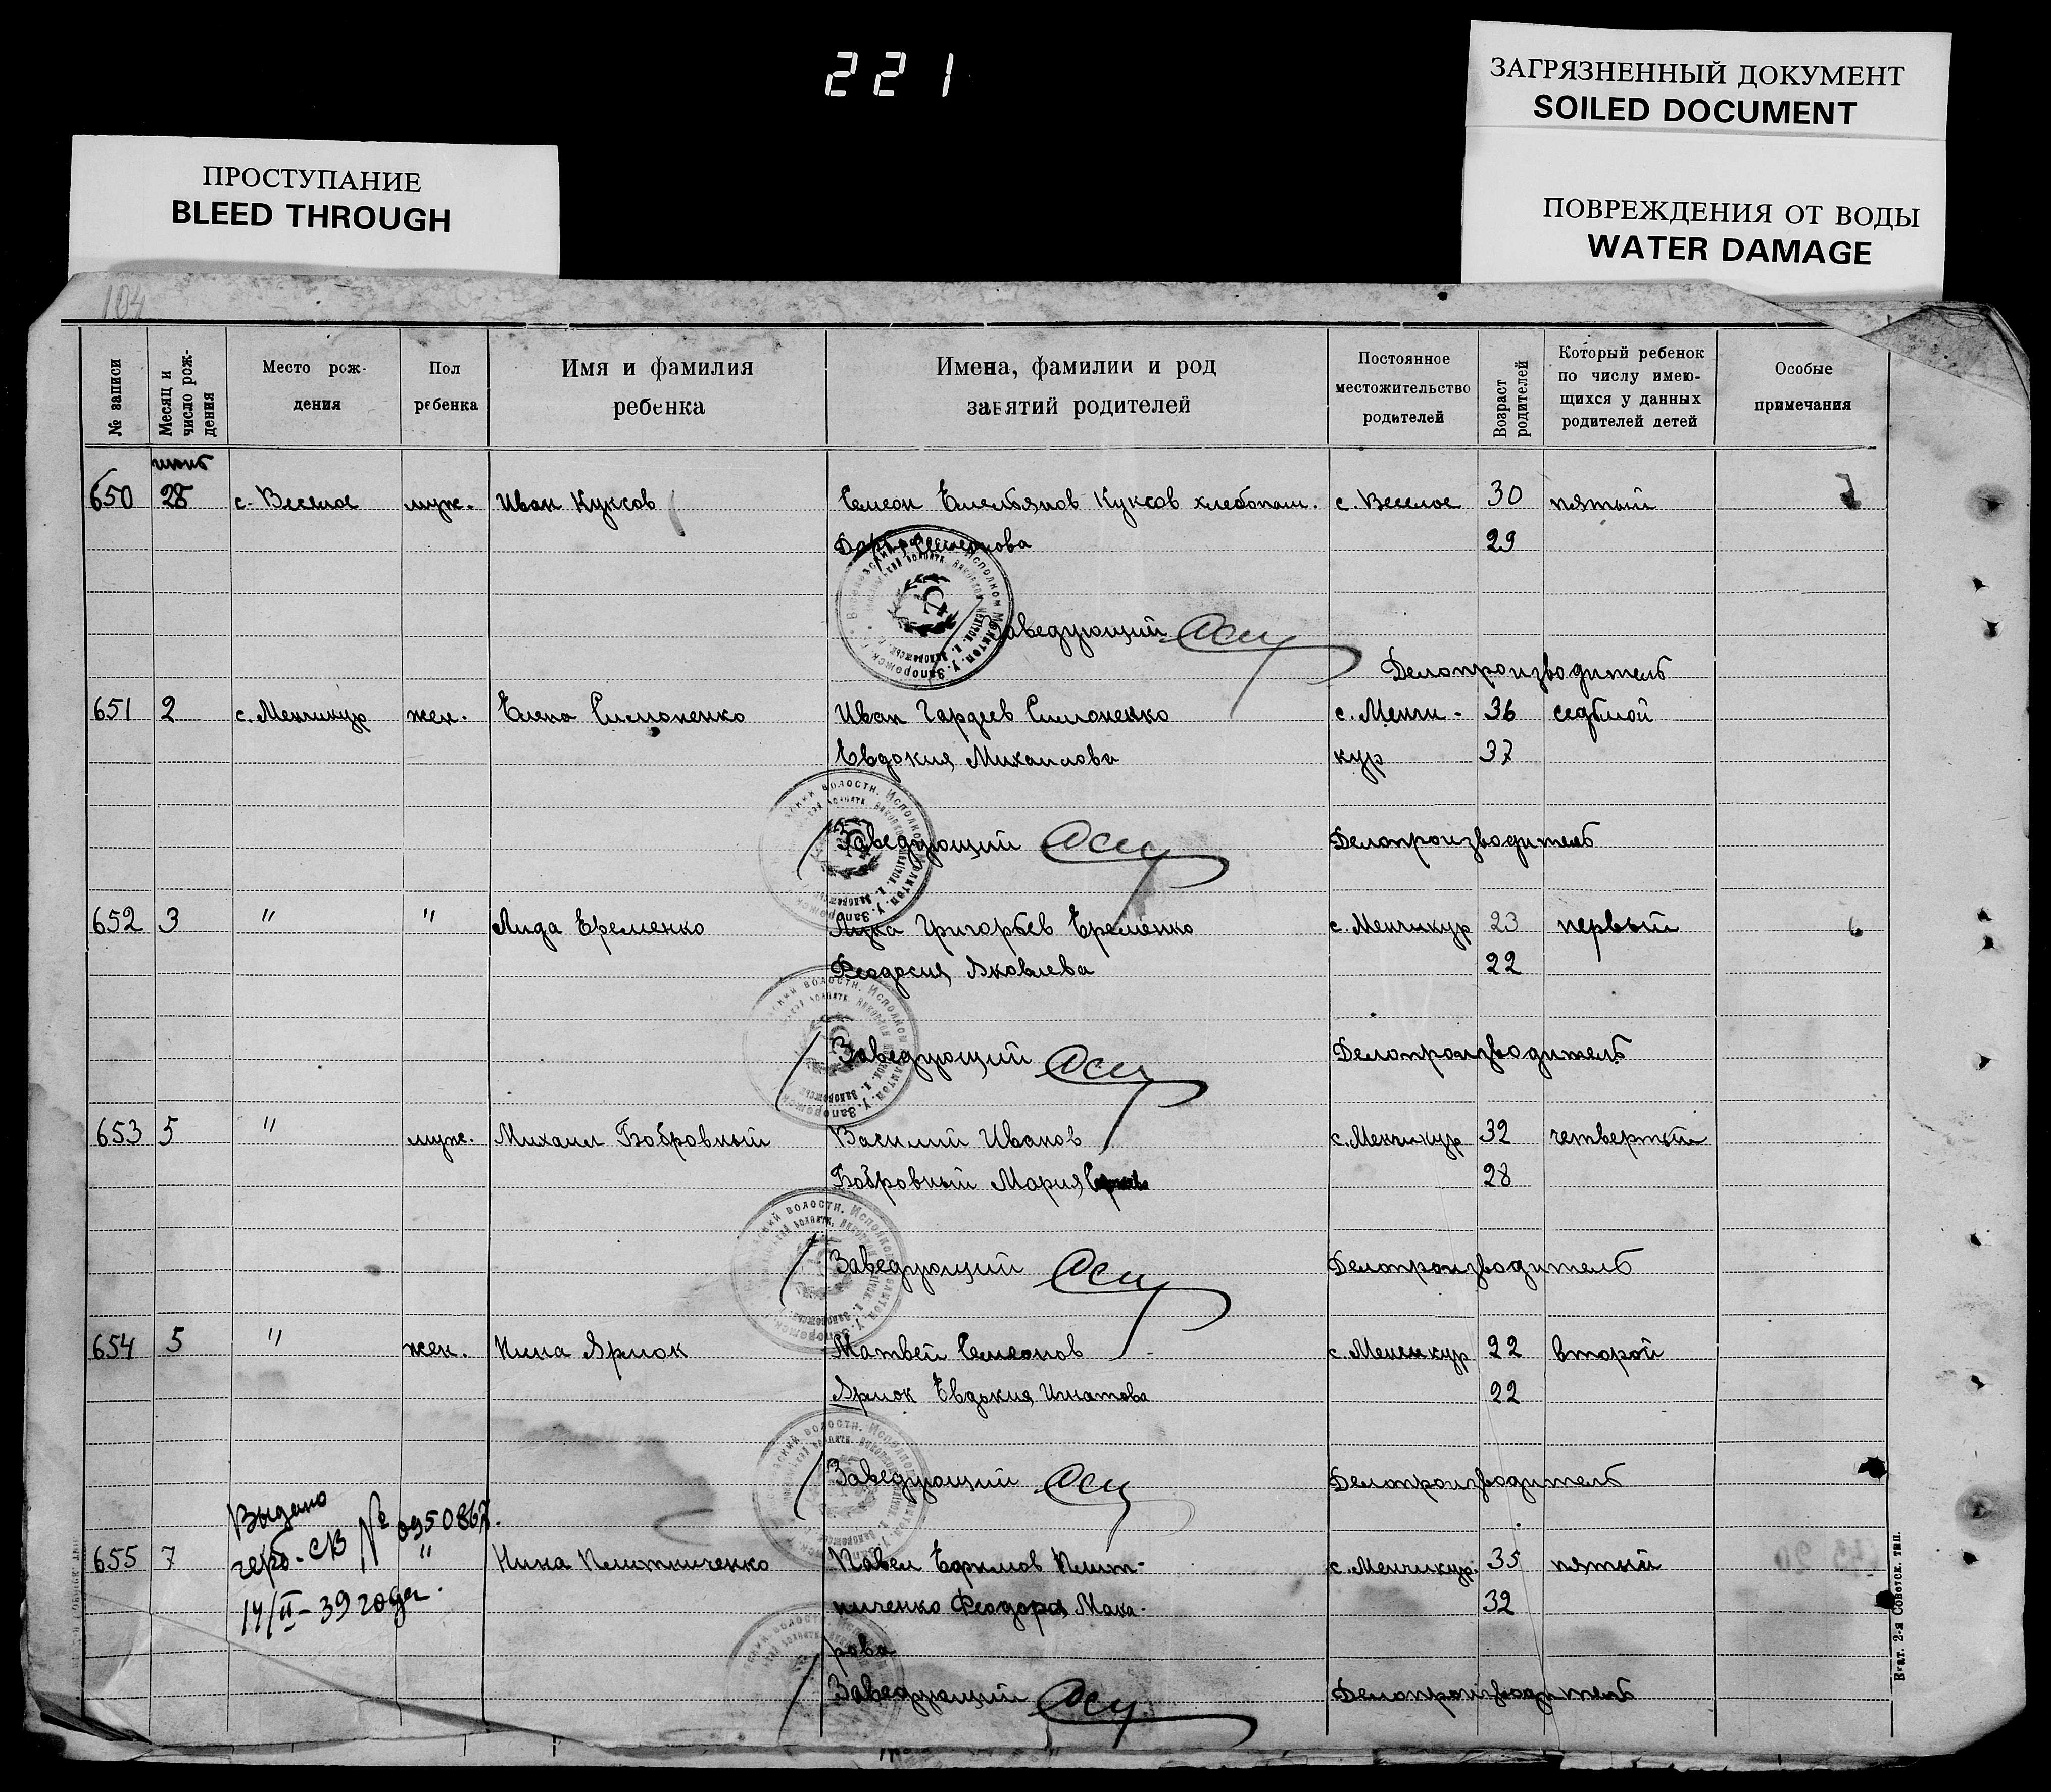 221
ЗАГРЯЗНЕННЫЙ ДОКУМЕНТ
SOILED DOCUMENT
ПРОСТУПАНИЕ
BLEED THROUGH
ПОВРЕЖДЕНИЯ ОТ ВОДЫ
WATER DAMAGE
104
№ записи
Месяц и число рож-дения
Место рож-дения
Пол ребенка
Имя и фамилия ребенка
Имена, фамилии и род занятий родителей
Постоянное местожительство родителей
Возраст родителей
Который ребенок по числу имею-щихся у данных родителей детей
Особые примечания
650 28 с. Веселое муж. Иван Куксов Семеон Емельянов Куксов хлебопаш. с. Веселое 30 пятый
Дарья Семеонова 29
Заведующий
Делопроизводитель
651 2 с. Менчикур жен. Елена Симоненко Иван Гардеев Симоненко с. Менчи- 36 седьмой
Евдокия Михаилова кур 37
Заведующий Делопроизводитель
652 3 " " Лида Еременко Лука Григорьев Еременко с. Менчикур 23 первый 6
Феодосия Яковлева 22
Заведующий Делопроизводитель
653 5 " муж. Михаил Бобровный Василий Иванов с. Менчикур 32 четвертый
Бобровный Мария 28
Заведующий Делопроизводитель
654 5 " жен. Нина Ярмок Матвей Семеонов с. Менчикур 22 второй
Ярмок Евдокия Игнатова 22
Заведующий Делопроизводитель
Выдано
герб. СВ № 0950867.
14/II-39 года.
655 7 " Нина Павел Ефимов с. Менчикур. 35 пятый
Феодора Мака- 32
рова
Заведующий Делопроизводитель
Екат. 2-я Советск. тип.